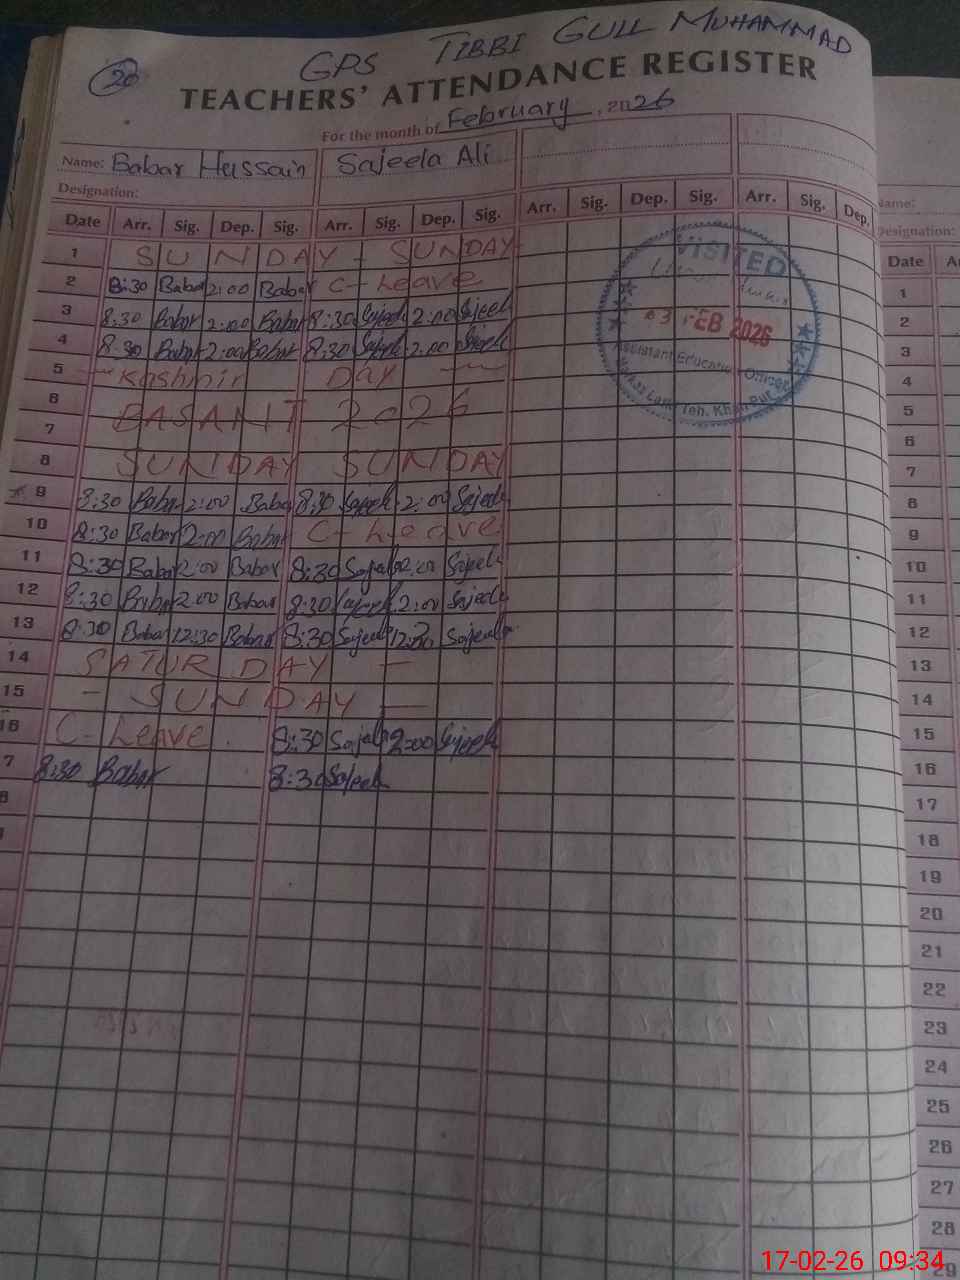 20
GPS TIBBI GULL MUHAMMAD
TEACHERS' ATTENDANCE REGISTER
For the month of February, 2026
Name: Babar Hussain Sajeela Ali
Designation:
Date Arr. Sig. Dep. Sig. Arr. Sig. Dep. Sig. Arr. Sig. Dep. Sig. Arr. Sig. Dep.
1 SUNDAY - SUNDAY
2 8:30 Babar 2:00 Babar C-Leave
3 8:30 Babar 2:00 Babar 8:30 Sajeela 2:00 Sajeela
4 8:30 Babar 2:00 Babar 8:30 Sajeela 2:00 Sajeela
5 Kashmir Day
6 BASANT 2026
7
8 SUNDAY SUNDAY
9 8:30 Babar 2:00 Babar 8:30 Sajeela 2:00 Sajeela
10 8:30 Babar 2:00 Babar C-Leave
11 8:30 Babar 2:00 Babar 8:30 Sajeela 2:00 Sajeela
12 8:30 Babar 2:00 Babar 8:30 Sajeela 2:00 Sajeela
13 8:30 Babar 12:30 Babar 8:30 Sajeela 12:30 Sajeela
14 SATURDAY -
15 - SUNDAY -
16 C-Leave 8:30 Sajeela 2:00 Sajeela
7 8:30 Babar 8:30 Sajeela
VISITED
03 FEB 2026
Assistant Education Officer
Teh. Khan Pur
Name:
Designation:
Date
1
2
3
4
5
6
7
8
9
10
11
12
13
14
15
16
17
18
19
20
21
22
23
24
25
26
27
28
29
17-02-26 09:34